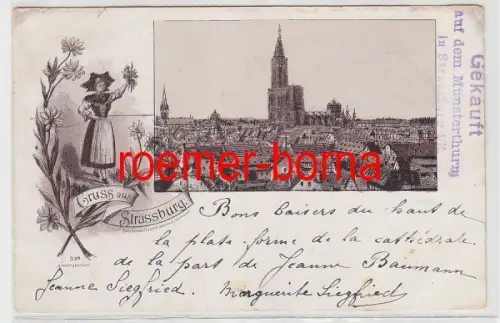 Gekauft
auf dem Münsterthurm
in Strassburg
roemer-borna
Gruss aus
Strassburg.
Bons baisers du haut de
la plate-forme de la cathédrale
de la part de Jeanne Baumann
Jeanne Siegfried. Marguerite Siegfried